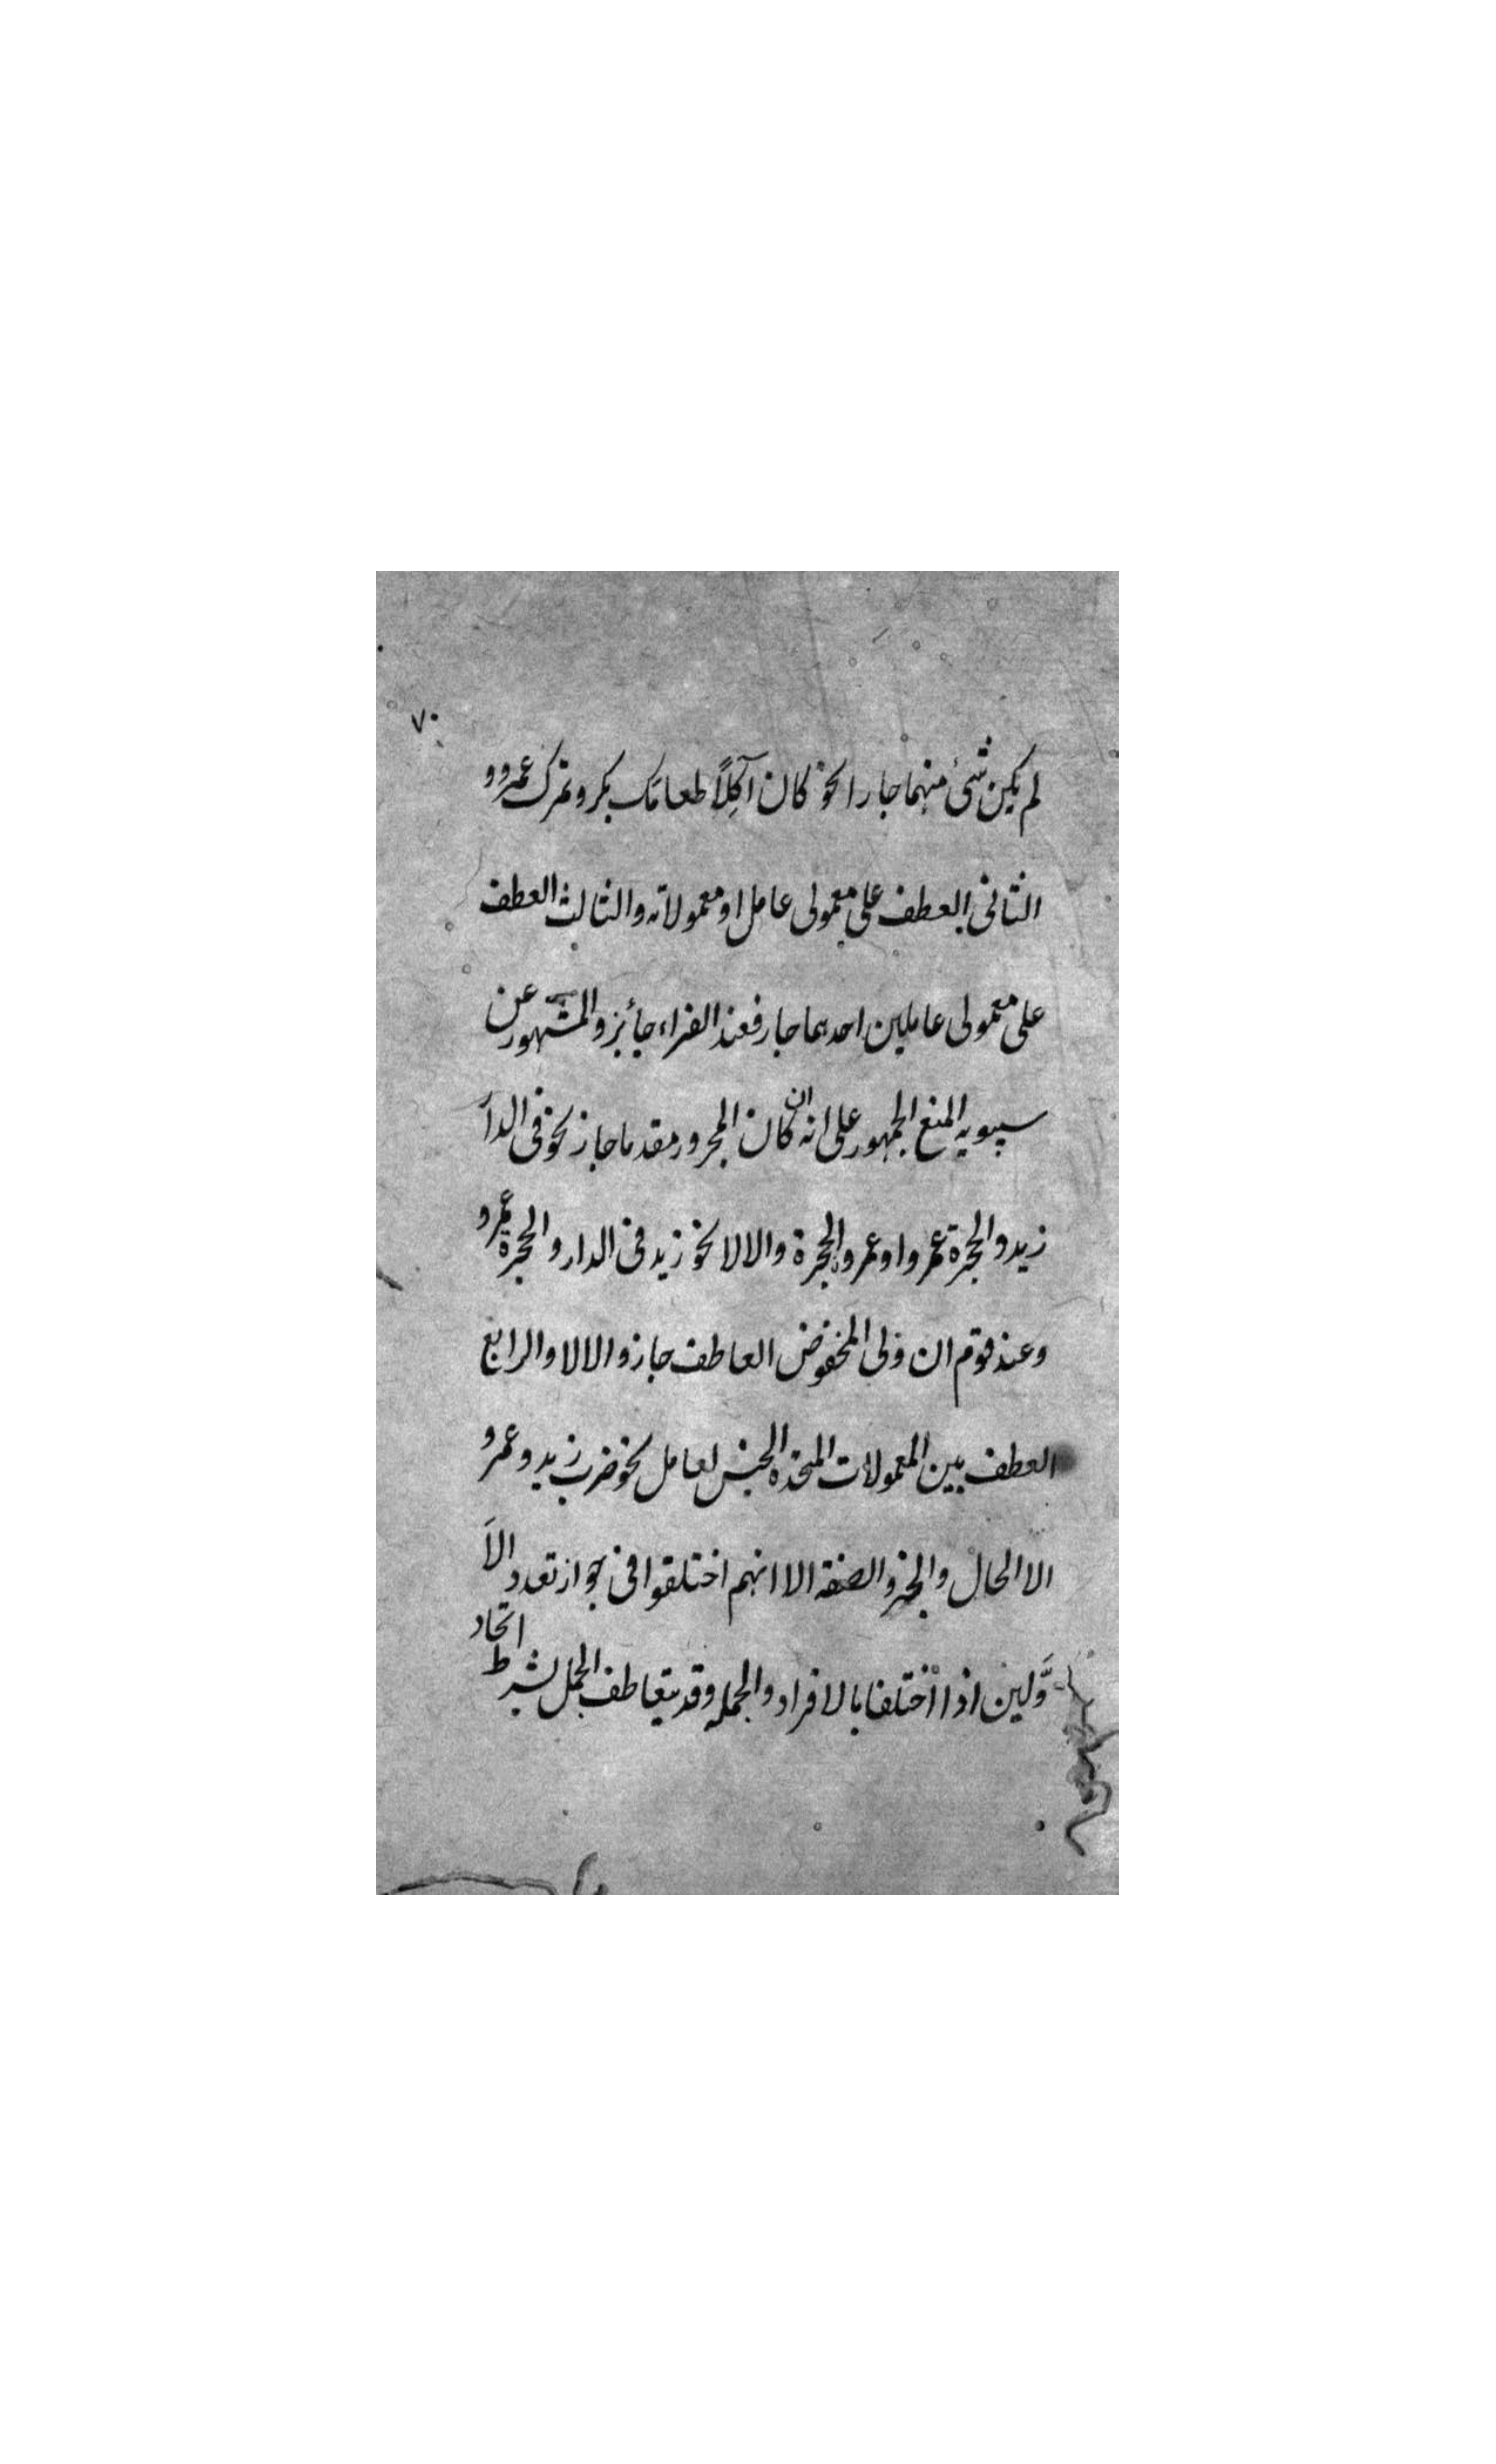 ٧٠
لم يكن شئ منهما جارا نحو كان آكلاً طعامك بكر وتمرك عمرو و
الثانى العطف على معمولى عامل او معمولاته والثالث العطف
على معمولى عاملين احدهما جار فعند الفراء جائز والمشهور عن
سيبويه المنع الجمهور على انه ان كان المجرور مقدما جاز نحو فى الدا
زيد والحجرة عمرو او عمرو والحجرة والا لا نحو زيد فى الدار والحجرة عمرو
وعند قوم ان ولى المخفوض العاطف جاز والا لا والرابع
العطف بين المعمولات المتحده الجنس لعامل نحو ضرب زيد وعمرو
الا الحال والخبر والصفة الا انهم اختلفوا فى جواز تعدد الا
وّلين اذا اختلفا بالافراد والجمله وقد يتعاطف الجمل بشرط اتحاد